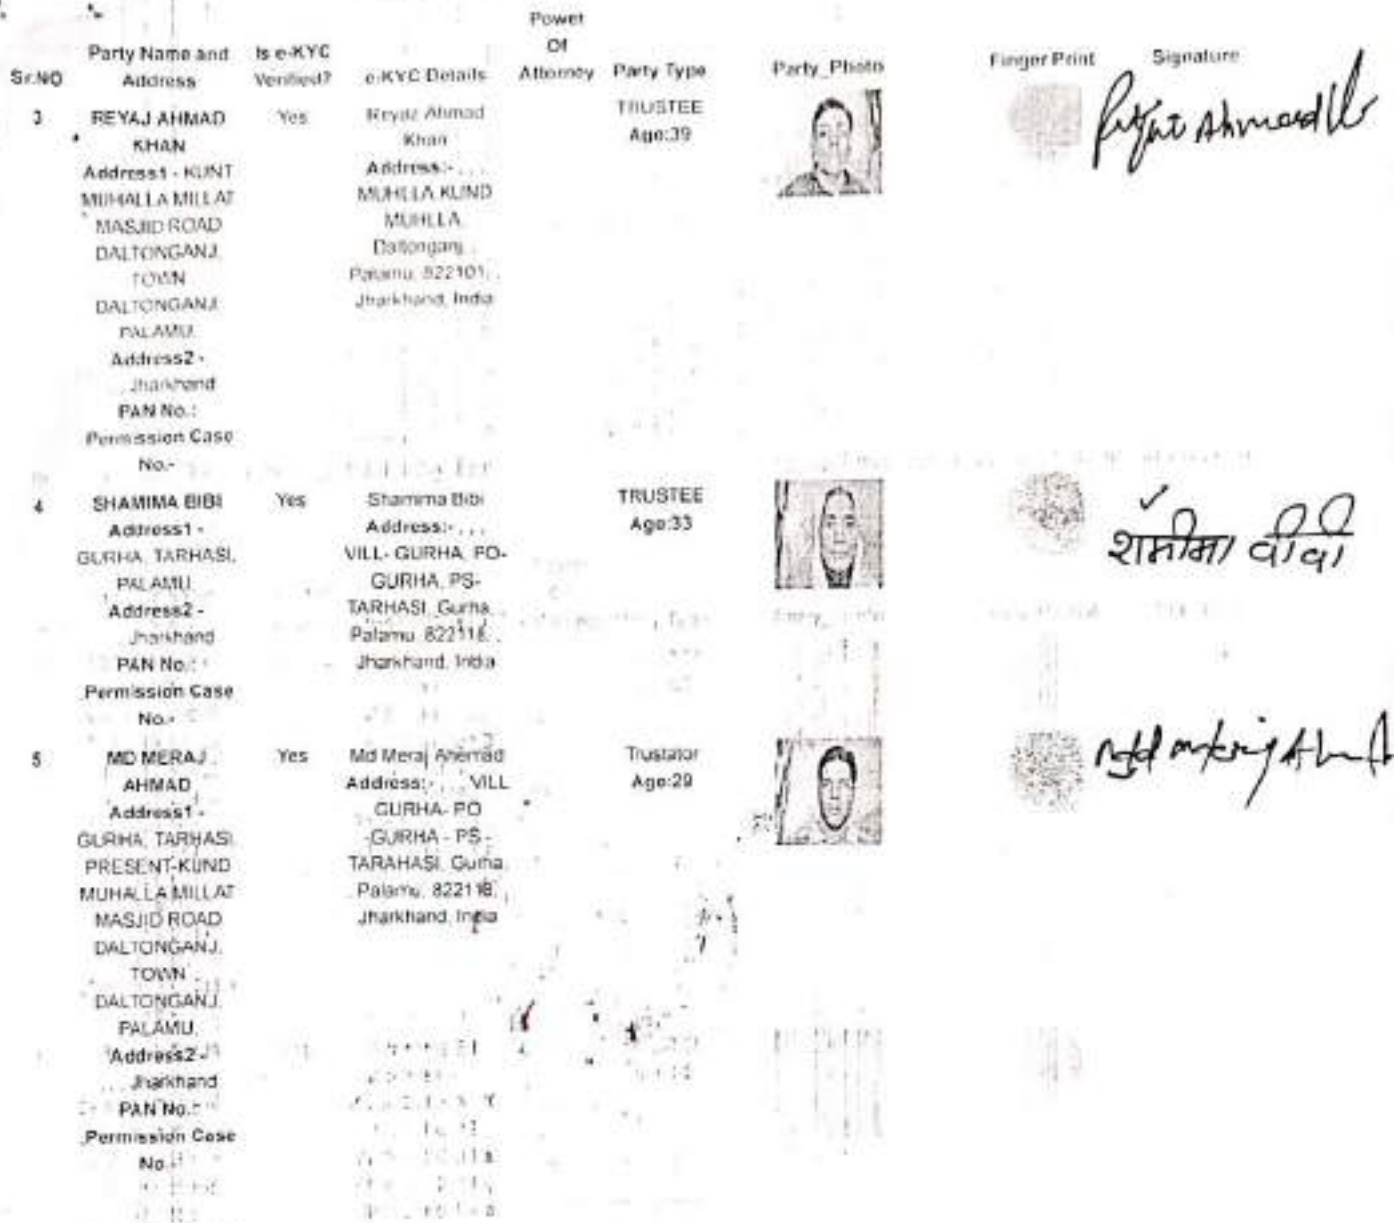 Power
Of
Attorney
Sr.NO
Party Name and
Address
Is e-KYC
Verified?
e-KYC Details
Party Type
Party_Photo
Finger Print
Signature
3
REYAJ AHMAD
KHAN
Address1 - KUNT
MUHALLA MILLAT
MASJID ROAD
DALTONGANJ,
TOWN
DALTONGANJ,
PALAMU,
Address2 -
, , , Jharkhand
PAN No.:
Permission Case
No.-
Yes
Reyaz Ahmad
Khan
Address:- , , ,
MUHLLA KUND
MUHLLA,
Daltonganj, ,
Palamu, 822101, ,
Jharkhand, India
TRUSTEE
Age:39
Ahmad
4
SHAMIMA BIBI
Address1 -
GURHA, TARHASI,
PALAMU,
Address2 -
, , , Jharkhand
PAN No.:
Permission Case
No.-
Yes
Shamima Bibi
Address:- , , ,
VILL- GURHA, PO-
GURHA, PS-
TARHASI, Gurha, ,
Palamu, 822118, ,
Jharkhand, India
TRUSTEE
Age:33
शमीमा वीवी
5
MD MERAJ
AHMAD
Address1 -
GURHA, TARHASI,
PRESENT-KUND
MUHALLA MILLAT
MASJID ROAD
DALTONGANJ,
TOWN
DALTONGANJ,
PALAMU,
Address2 -
, , , Jharkhand
PAN No.:
Permission Case
No.-
Yes
Md Meraj Ahemad
Address:- , , , VILL
GURHA- PO
-GURHA - PS -
TARAHASI, Gurha,
, Palamu, 822118, ,
Jharkhand, India
Trustator
Age:29